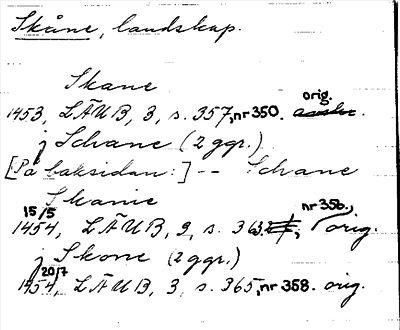 Skåne, landskap.
Skane
1453, LÄUB, 3, s. 357, nr 350. orig.
j Schane (2 ggr.)
[På baksidan:] -- Schane
Skanie
15/5 1454, LÄUB, s. 363, nr 356, orig.
j Skone (2 ggr.)
20/7 1454, LÄUB, 3, s. 365, nr 358. orig.